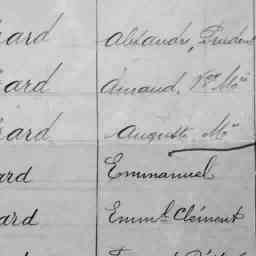 ard Alexandre, Prudent
ard Arnaud, Vor Mie
ard Auguste Mie
ard Emmanuel
ard Emml Clément